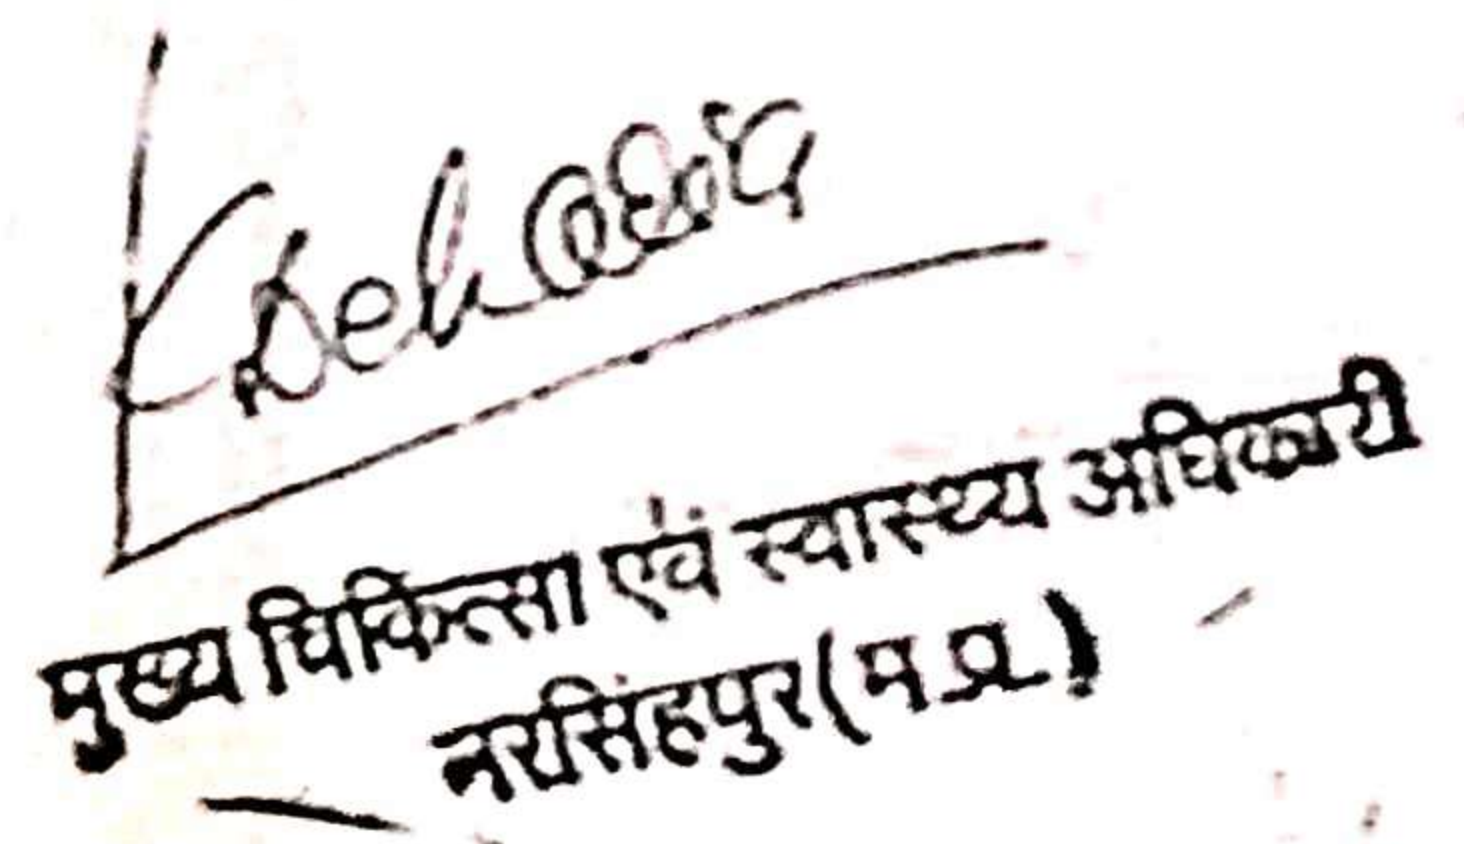 मुख्य चिकित्सा एवं स्वास्थ्य अधिकारी
नरसिंहपुर (म.प्र.)